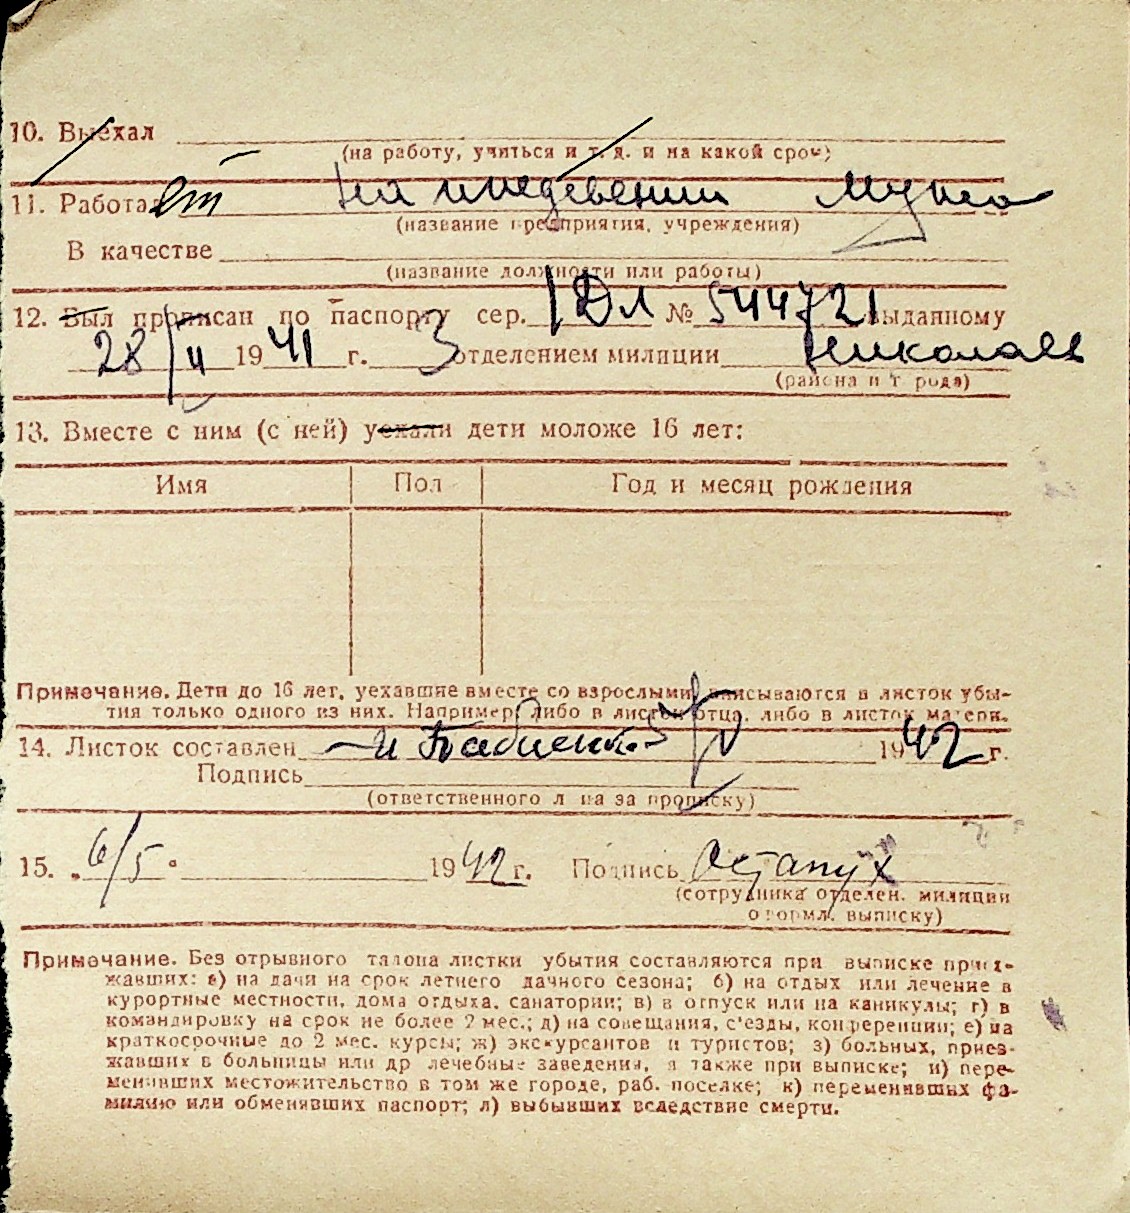 10. Выехал
(на работу, учиться и т. д. и на какой срок)
11. Работает На иждевении мужа
(название предприятия, учреждения)
В качестве
(название должности или работы)
12. Был прописан по паспорту сер. I ДЛ № 544721 выданному
28/II 1941 г. 3 отделением милиции Николаев
(района и города)
13. Вместе с ним (с ней) уехали дети моложе 16 лет:
Имя Пол Год и месяц рождения
Примечание. Дети до 16 лет, уехавшие вместе со взрослыми, вписываются в листок убы-
тия только одного из них. Например, либо в листок отца, либо в листок матери.
14. Листок составлен 1942 г.
Подпись
(ответственного лица за прописку)
15. 6/5 1942 г. Подпись Остапух
(сотрудника отделен. милиции
оформл. выписку)
Примечание. Без отрывного талона листки убытия составляются при выписке приез-
жавших: а) на дачи на срок летнего дачного сезона; б) на отдых или лечение в
курортные местности, дома отдыха, санатории; в) в отпуск или на каникулы; г) в
командировку на срок не более 2 мес.; д) на совещания, с'езды, конференции; е) на
краткосрочные до 2 мес. курсы; ж) экскурсантов и туристов; з) больных, приез-
жавших в больницы или др лечебные заведения, а также при выписке; и) пере-
менивших местожительство в том же городе, раб. поселке; к) переменивших фа-
милию или обменявших паспорт; л) выбывших вследствие смерти.